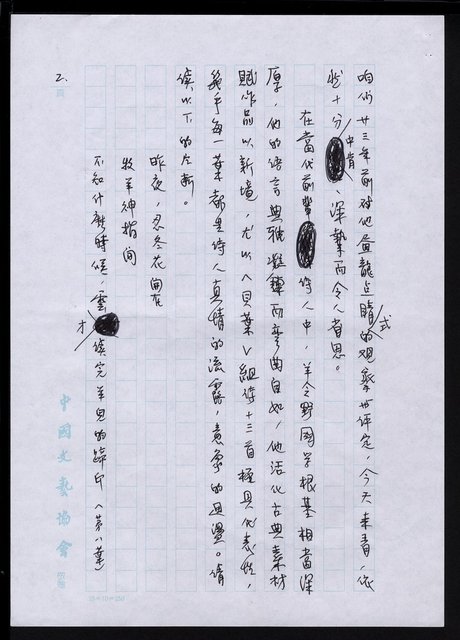 咱們廿三年前對他畫龍点睛式的觀察與評定，今天来看，依
然十分中肯、深摯而令人省思。
在當代前輩詩人中，羊令野國学根基相當深
厚，他的语言典雅凝鍊而彎曲自如，他活化古典素材
賦作品以新境，尤以〈貝葉〉組诗十三首極具代表性，
幾乎每一葉都是诗人真情的流露，意象的迴盪。请
读以下的片断。
昨夜，忍冬花開在
牧羊神指间
不知什麽時候，雲才读完羊兒的蹄印（第八葉）
2.
頁
中國文藝協會
25×10=250